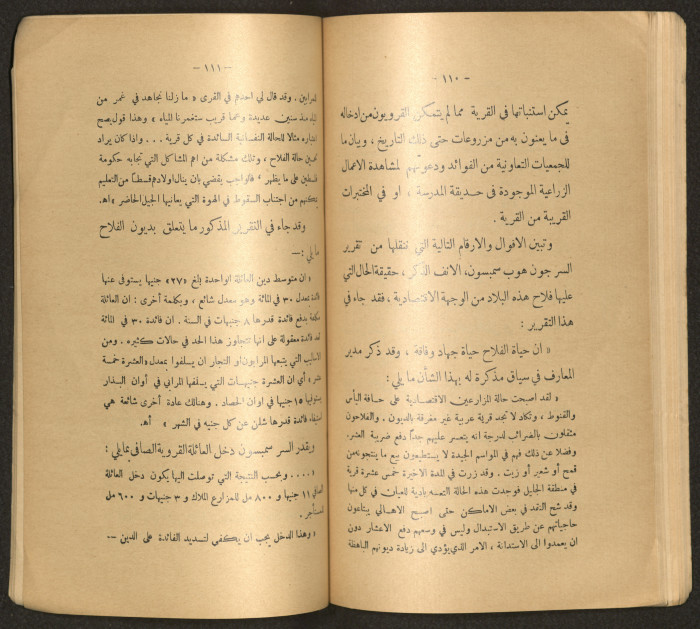 — ١١٠ —
يمكن استنباتها فى القرية مما لم يتمكن القرويون من ادخاله
فى ما يعنون به من مزروعات حتى ذلك التاريخ، وبيان ما
للجمعيات التعاونية من الفوائد ودعوتهم لمشاهدة الاعمال
الزراعية الموجودة فى حديقة المدرسة ، او في المختبرات
القريبة من القرية .
وتبين الاقوال والارقام التالية التي ننقلها من تقرير
السر جون هوب سمبسون، الانف الذكر، حقيقة الحال التي
عليها فلاح هذه البلاد من الوجهة الاقتصادية، فقد جاء في
هذا التقرير :
« ان حياة الفلاح حياة جهاد وفاقة ، وقد ذكر مدير
المعارف في سياق مذكرة له بهذا الشأن ما يلي :
« لقد اصبحت حالة المزارعين الاقتصادية على حافة اليأس
والقنوط ، وتكاد لا تجد قرية عربية غير مغرقة بالديون . والفلاحون
مثقلون بالضرائب لدرجة انه يتعسر عليهم جداً دفع ضريبة العشر .
وفضلا عن ذلك فهم في المواسم الجيدة لا يستطيعون بيع ما ينتجونه من
قمح أو شعير أو زيت . وقد زرت في المدة الاخيرة خمس عشرة قرية
في منطقة الجليل فوجدت هذه الحالة التعسه بادية للعيان في كل منها
وقد شح النقد في بعض الاماكن حتى اصبح الاهالي يبتاعون
حاجياتهم عن طريق الاستبدال وليس في وسعهم دفع الاعشار دون
ان يعمدوا الى الاستدانة ، الامر الذي يؤدي الى زيادة ديونهم الباهظة
— ١١١ —
للمرابين . وقد قال لي احدهم في القرى « ما زلنا نجاهد في غمر من
المياه منذ سنين عديدة وعما قريب ستغمرنا المياه » وهذا قول يصح
اعتباره مثالا للحالة النفسانية السائدة في كل قرية ... واذا كان يراد
تحسين حالة الفلاح ، وتلك مشكلة من اهم المشاكل التي تجابه حكومة
فلسطين على ما يظهر ، فالواجب يقضي بان ينال اولادهم قسطاً من التعليم
يمكنهم من اجتناب السقوط في الهوة التي يعانيها الجيل الحاضر » اهـ.
وقد جاء في التقرير المذكور ما يتعلق بديون الفلاح
ما يلي :—
« ان متوسط دين العائلة الواحدة بلغ «٢٧» جنيها يستوفى عنها
فائدة بمعدل ٣٠ في المائة وهو معدل شائع ، وبكلمة أخرى : ان العائلة
مكلفة بدفع فائدة قدرها ٨ جنيهات في السنة . ان فائدة ٣٠ في المائة
تعد فائدة معقولة على انها تتجاوز هذا الحد في حالات كثيره . ومن
الاساليب التي يتبعها المرابون او التجار ان يسلفوا بمعدل «العشرة خمسة
عشر» أي ان العشرة جنيهات التي يسلفها المرابي في أوان البذار
يستوفيها ١٥ جنيها في اوان الحصاد . وهنالك عادة أخرى شائعة هي
استيفاء فائدة قدرها شلن عن كل جنيه في الشهر » اهـ.
ويقدر السر سمبسون دخل العائلة القروية الصافي بما يلي :
« .... وبحسب النتيجة التي توصلت اليها يكون دخل العائلة
الصافي ١١ جنيها و ٨٠٠ مل للمزارع الملاك و ٣ جنيهات و ٦٠٠ مل
للمستأجر .
« وهذا الدخل يجب ان يكفي لتسديد الفائدة على الدين —